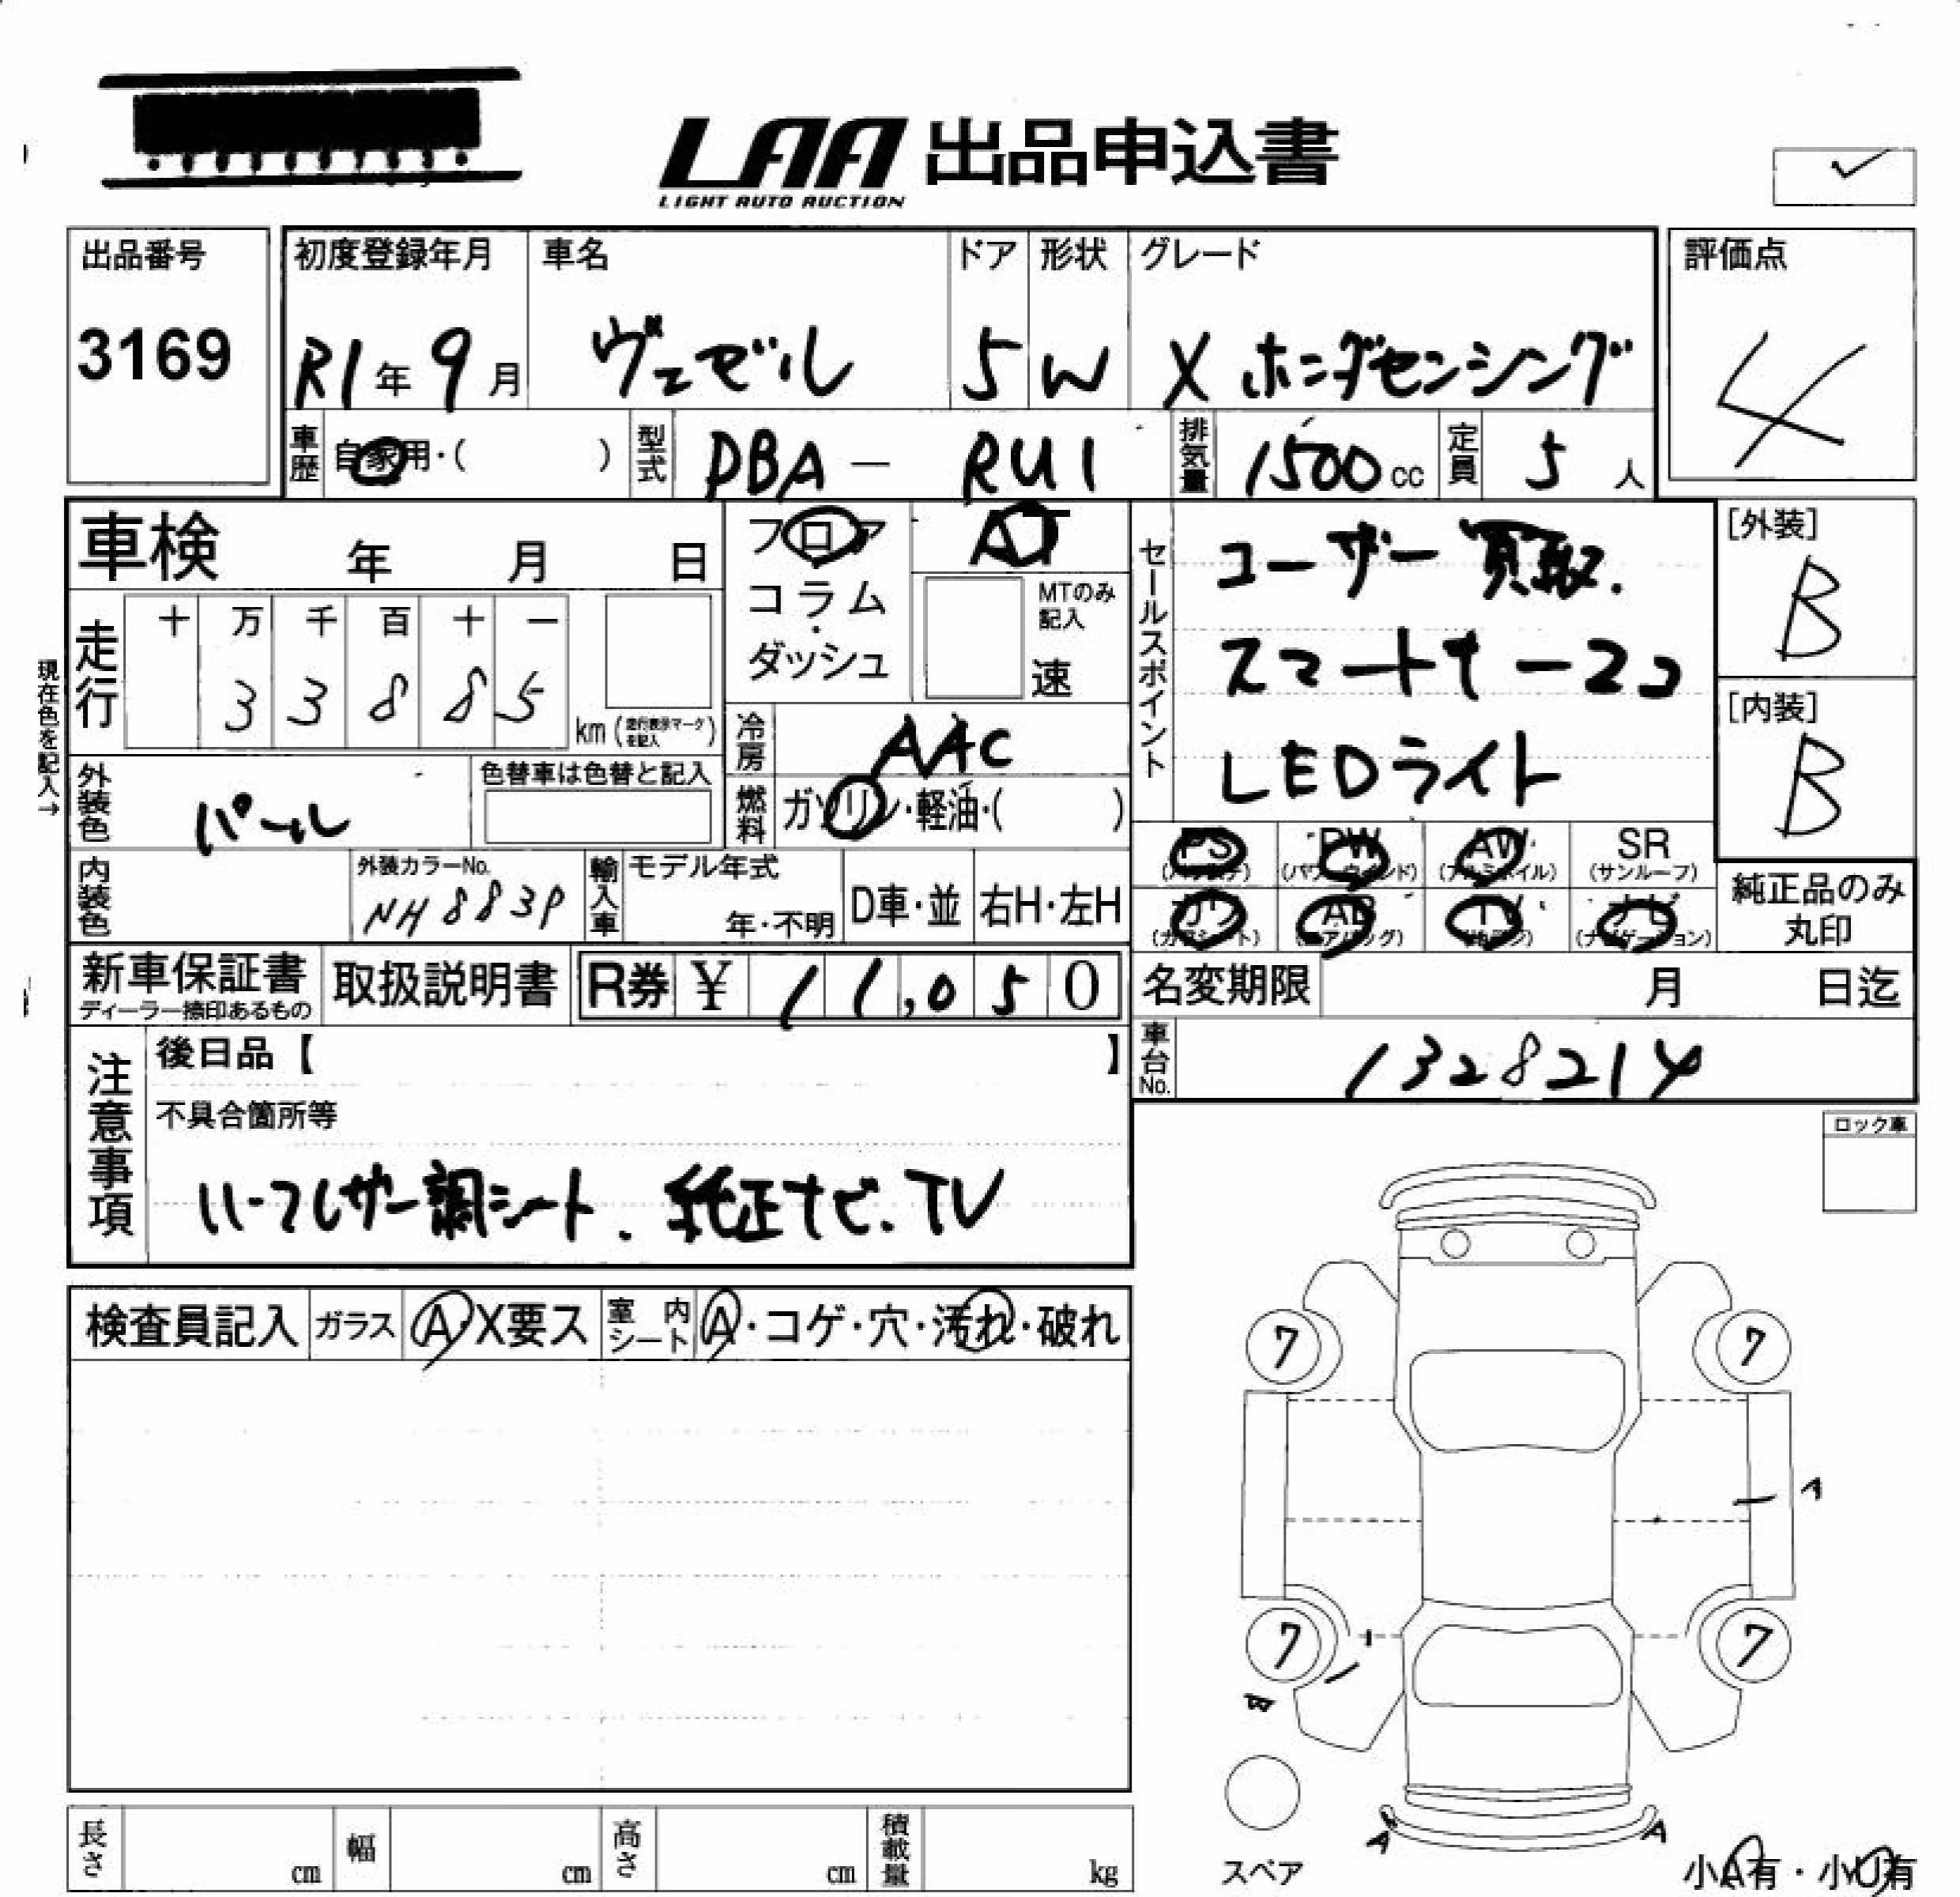 LAA 出品申込書
LIGHT AUTO AUCTION
出品番号
3169
初度登録年月
R1年9月
車名
ヴェゼル
ドア
5
形状
W
グレード
X ホンダセンシング
評価点
4
車歴
自家用・( )
型式
DBA - RU1
排気量
1500cc
定員
5人
車検 年 月 日
フロア
コラム
・
ダッシュ
AT
MTのみ
記入
速
セールスポイント
ユーザー買取.
スマートキーココ
LEDライト
[外装]
B
[内装]
B
現在色を記入→
走行
十 万 千 百 十 一
3 3 8 8 5
km (走行表示マークを記入)
冷房
AAC
外装色
パール
色替車は色替と記入
燃料
ガソリン・軽油・( )
内装色
外装カラーNo.
NH883P
輸入車
モデル年式
年・不明
D車・並
右H・左H
PS
(パワステ)
PW
(パワーウインド)
AW
(アルミホイル)
SR
(サンルーフ)
カワ
(カワシート)
AB
(エアバッグ)
TV
ナビ
(ナビゲーション)
純正品のみ
丸印
新車保証書
ディーラー捺印あるもの
取扱説明書
R券 ¥ 11,050
名変期限 月 日迄
車台No.
1328214
注意事項
後日品【 】
不具合箇所等
ハーフレザー調シート. 純正ナビ.TV
ロック車
検査員記入
ガラス
A・X要ス
室内シート
A・コゲ・穴・汚れ・破れ
7
7
A
7
7
B
A
A
スペア
小A有・小U有
長さ cm
幅 cm
高さ cm
積載量 kg